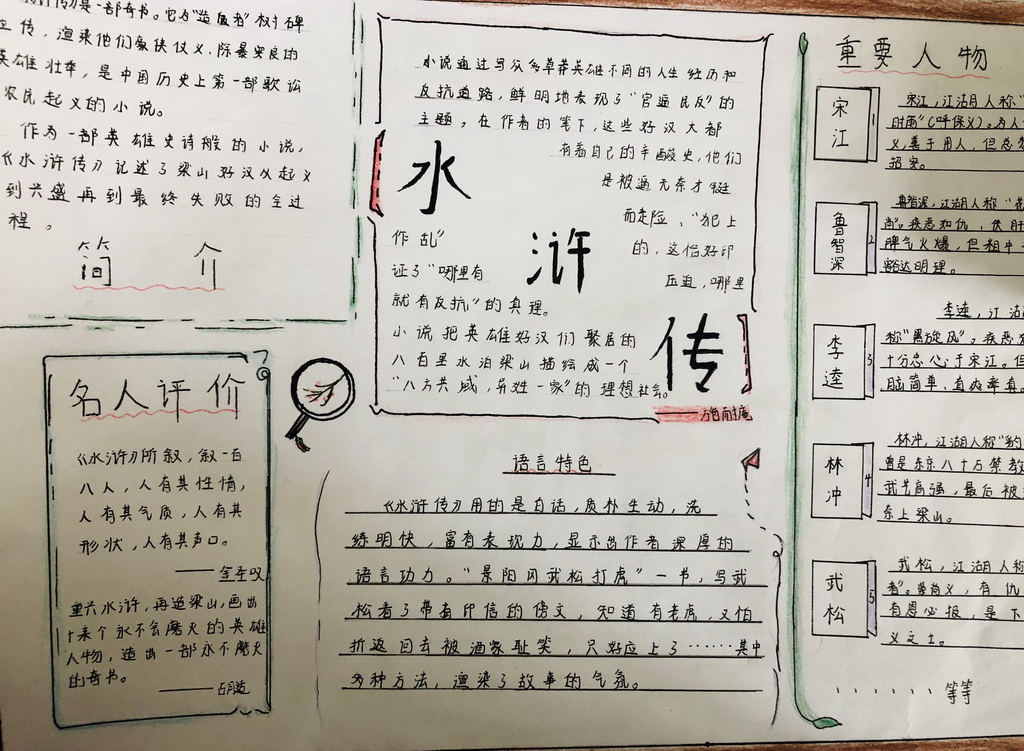 浒传》是一部奇书。它为"造反者"树碑
立传，渲染他们豪侠仗义、除暴安良的
英雄壮举，是中国历史上第一部歌讼
农民起义的小说。
作为一部英雄史诗般的小说，
《水浒传》记述了梁山好汉从起义
到兴盛再到最终失败的全过
程。
简介
名人评价
《水浒》所叙，叙一百
八人，人有其性情，
人有其气质，人有其
形状，人有其声口。
——金圣叹
重六水浒，再造梁山，画出
十来个永不会磨灭的英雄
人物，造出一部永不磨灭
的奇书。
——胡适
小说通过写众多草莽英雄不同的人生经历和
反抗道路，鲜明地表现了"官逼民反"的
主题。在作者的笔下，这些好汉大都
有着自己的辛酸史，他们
是被逼无奈才铤
而走险、"犯上
作乱"
的，这恰好印
证了"哪里有
压迫，哪里
就有反抗"的真理。
小说把英雄好汉们聚居的
八百里水泊梁山描绘成一个
"八方共域，异姓一家"的理想社会。
水浒传
——施耐庵
语言特色
《水浒传》用的是白话，质朴生动，洗
练明快，富有表现力，显示出作者深厚的
语言功力。"景阳冈武松打虎"一书，写武
松看了带有印信的傍文，知道有老虎，又怕
折返回去被酒家耻笑，只好应上了……其中
多种方法，渲染了故事的气氛。
重要人物
宋江
1
宋江，江湖人称"
时雨"（呼保义）。为人
义，善于用人，但总想
招安。
鲁智深
2
鲁智深，江湖人称"花
尚"。疾恶如仇、
脾气火爆，但粗中
豁达明理。
李逵
3
李逵，江湖
称"黑旋风"。疾恶
十分忠心于宋江。但
头脑简单、直爽率真。
林冲
4
林冲，江湖人称"豹
曾是东京八十万禁教
武艺高强，最后被
东上梁山。
武松
5
武松，江湖人称
者"。崇尚义，有仇
有恩必报，是下
义之士。
······等等